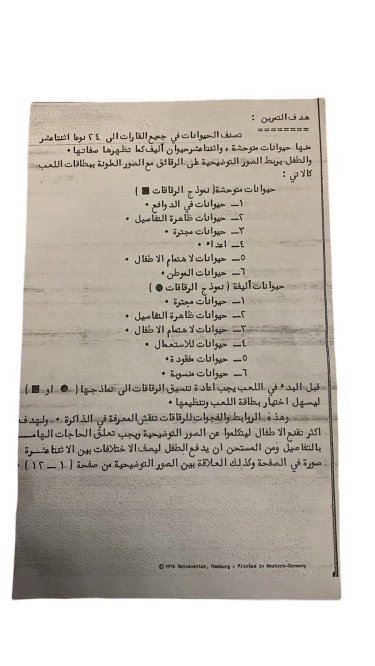 هدف التمرين :
========
تصنف الحيوانات في جميع القارات الى ٢٤ نوعا اثنتاعشر
منها حيوانات متوحشة ، واثنتاعشرحيوان أليف كما تظهرها صفاتها •
والطفل يربط الصور التوضيحية على الرقائق مع الصور الملونة ببطاقات اللعب
كالاتي :
حيوانات متوحشة( نموذج الرقاقات ■ )
١ــ حيوانات في الدوافع •
٢ــ حيوانات ظاهرة التفاصيل •
٣ــ حيوانات مجترة •
٤ــ اعداء •
٥ــ حيوانات لاهتمام الاطفال •
٦ــ حيوانات الموطن •
حيوانات أليفة ( نموذج الرقاقات ● )
١ــ حيوانات مجترة •
٢ــ حيوانات ظاهرة التفاصيل •
٣ــ حيوانات لاهتمام الاطفال •
٤ــ حيوانات للاستعمال •
٥ــ حيوانات مفقودة •
٦ــ حيوانات منسوبة •
قبل البدء في اللعب يجب اعادة تنسيق الرقاقات الى نماذجها ( ● او ■ )
ليسهل اختيار بطاقة اللعب وتنظيمها •
وهذه الروابط والفجوات للرقاقات تنقش المعرفة في الذاكرة • ولهدف
اكثر تقنع الاطفال ليتكلموا عن الصور التوضيحية ويجب تعلق الحاجات الهامــ
بالتفاصيل ومن المستحن ان يدفع الطفل ليصف الاختلافات بين الاثنتا عشــرة
صورة في الصفحة وكذلك العلاقة بين الصور التوضيحية من صفحة ( ١ ــ ١٢ ) •
© 1976 Heinevetter, Hamburg - Printed in Western-Germany